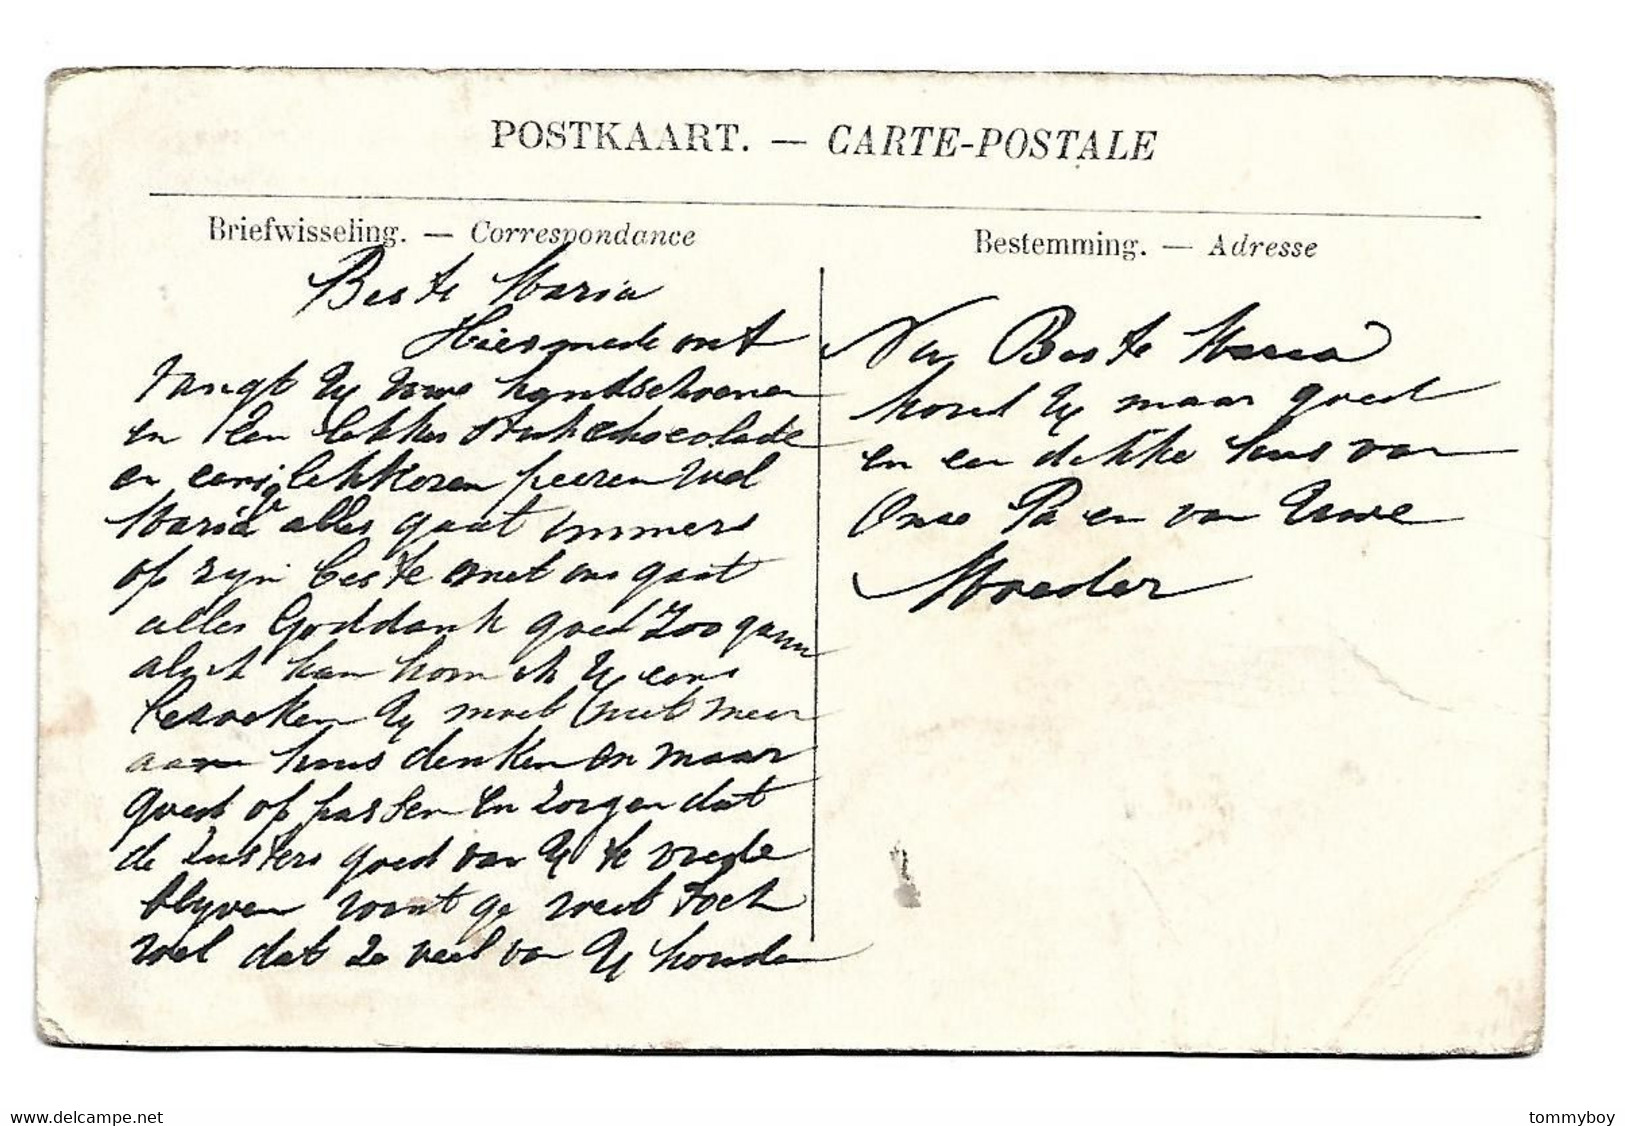 POSTKAART. — CARTE-POSTALE
Briefwisseling. — Correspondance
Beste Maria
Hiermede ont
vangt Uy uwe handschoenen
en een lekker stuk chocolade
en eenig lekkeren peeren wel
Maria alles gaat immers
op zyn beste met ons gaat
alles Goddank goed Zoo gauw
als ik kan kom ik Uy eens
bezoeken Uy moet niet meer
aan huus denken en maar
goed op passen en zorgen dat
de Zusters goed van Uy te vrede
blyven want ge weet toch
wel dat ze veel van Uy houden
Bestemming. — Adresse
Nu Beste Maria
houd Uy maar goed
en een dikke kus van
Onse Pa en van Uwe
Moeder
www.delcampe.net
tommyboy